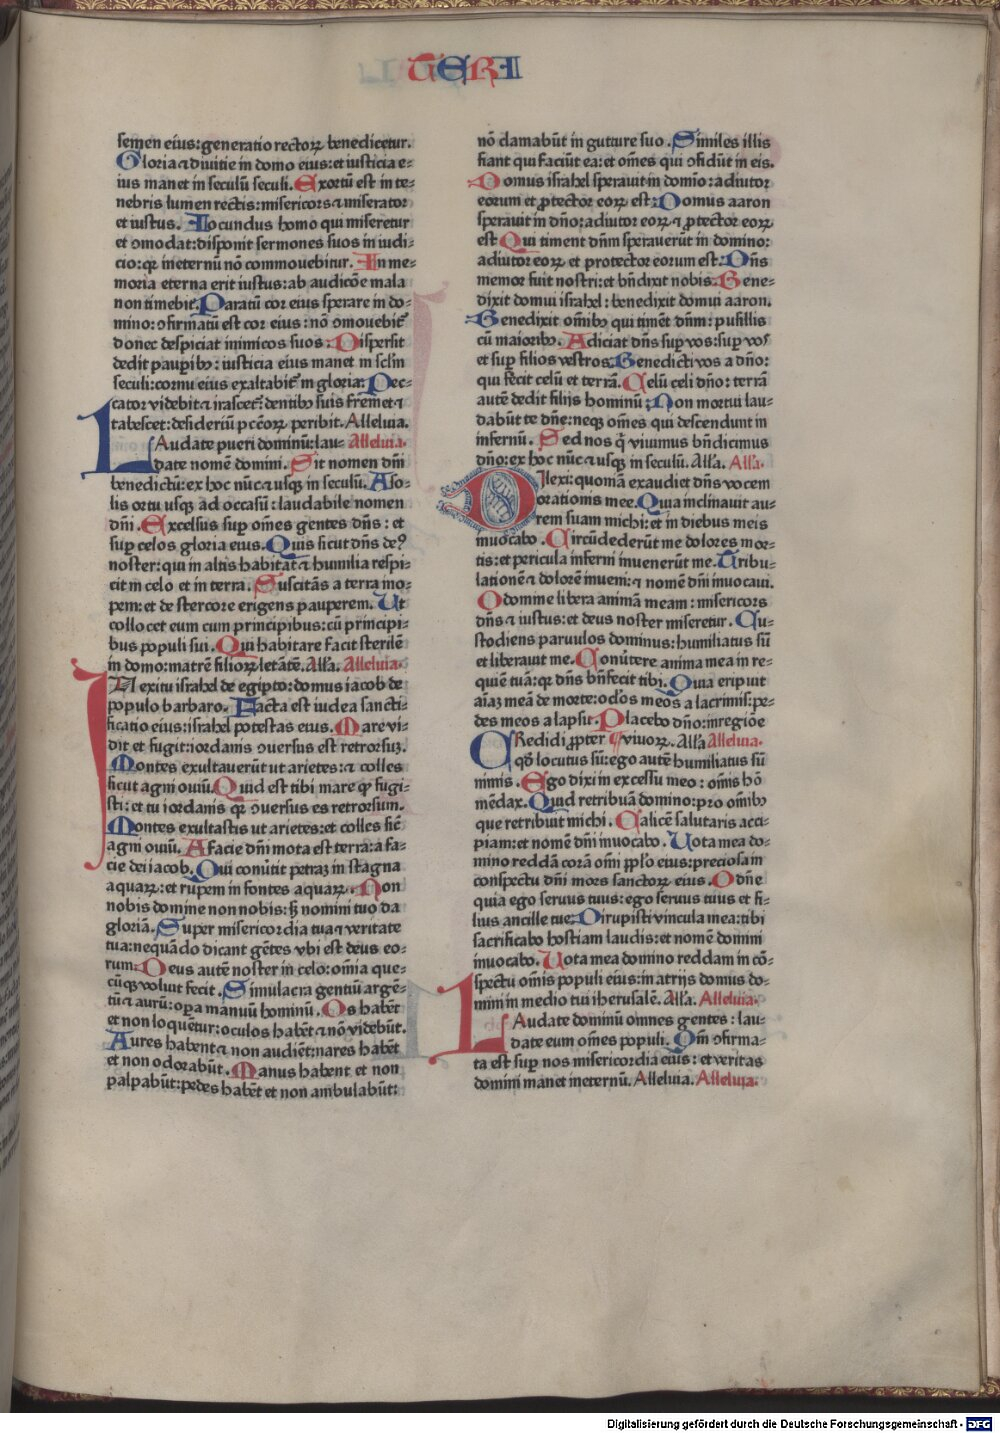 TERI
semen eius: generatio rectoꝝ benedicetur.
Gloria ⁊ diuitie in domo eius: et iusticia e-
ius manet in seculū seculi. Exortū est in te-
nebris lumen rectis: misericors ⁊ miserator
et iustus. Iocundus homo qui miseretur
et ꝯmodat: disponit sermones suos in iudi-
cio: qꝛ ineternū nō commouebitur. In me-
moria eterna erit iustus: ab audicōe mala
non timebit. Paratū cor eius sperare in do-
mino: ꝯfirmatū est cor eius: nō ꝯmouebit᷑
donec despiciat inimicos suos: Dispersit
dedit paupibꝫ: iusticia eius manet in sclm̄
seculi: cornu eius exaltabit᷑ in gloria: Pec-
cator videbit ⁊ irascet᷑: dentibꝫ suis fremet ⁊
tabescet: desideriū pc̄cōꝝ peribit. Alleluia.
LAudate pueri dominū: lau- Alleluia.
date nomē domini. Sit nomen dn̄i
benedictū: ex hoc nūc ⁊ usqꝫ in seculū. A so-
lis ortu usqꝫ ad occasū: laudabile nomen
dn̄i. Excelsus sup om̄es gentes dn̄s: et
sup celos gloria eius. Quis sicut dn̄s deꝰ
noster: qui in altis habitat ⁊ humilia respi-
cit in celo et in terra. Suscitās a terra ino-
pem: et de stercore erigens pauperem. Ut
collocet eum cum principibus: cū principi-
bus populi sui. Qui habitare facit sterilē
in domo: matrē filioꝝ letātē. Alła. Alleluia.
IN exitu israhel de egipto: domus iacob de
populo barbaro. Facta est iudea sancti-
ficatio eius: israhel potestas eius. Mare vi-
dit et fugit: iordanis ꝯuersus est retrorsuꝫ.
Montes exultauerūt ut arietes: ⁊ colles
sicut agni ouiū. Quid est tibi mare qꝫ fugi-
sti: et tu iordanis qꝛ ꝯuersus es retrorsum.
Montes exultastis ut arietes: et colles sic̄
agni ouiū. A facie dn̄i mota est terra: a fa-
cie dei iacob. Qui conūtit petraꝫ in stagna
aquaꝝ: et rupem in fontes aquaꝝ. Non
nobis domine non nobis: sꝫ nomini tuo da
gloriā. Super misericordia tua ⁊ veritate
tua: nequādo dicant gētes vbi est deus eo-
rum: Deus autē noster in celo: om̄ia que-
cūqꝫ voluit fecit. Simulacra gentiū argē-
tū ⁊ aurū: opa manuū hominū. Os habēt
et non loquētur: oculos habēt ⁊ nō videbūt.
Aures habent ⁊ non audiēt: nares habēt
et non odorabūt. Manus habent et non
palpabūt: pedes habēt et non ambulabūt:
nō clamabūt in gutture suo. Similes illis
fiant qui faciūt ea: et om̄es qui ꝯfidūt in eis.
Domus israhel sperauit in domīo: adiutor
eorum et ꝓtector eoꝝ est: Domus aaron
sperauit in dn̄o: adiutor eoꝝ ⁊ ꝓtector eoꝝ
est Qui timent dn̄m sperauerūt in domino:
adiutor eoꝝ et protector eorum est: Dn̄s
memor fuit nostri: et bn̄dixit nobis. Bene-
dixit domui israhel: benedixit domui aaron.
Benedixit om̄ibꝫ qui timēt dn̄m: pusillis
cū maioribꝫ. Adiciat dn̄s sup vos: sup vos
et sup filios vestros Benedicti vos a dn̄o:
qui fecit celū et terrā. Celū celi dn̄o: terrā
autē dedit filijs hominū: Non mortui lau-
dabūt te dn̄e: neqꝫ om̄es qui descendunt in
infernū. Sed nos q̄ viuimus bn̄dicimus
dn̄o: ex hoc nūc ⁊ usqꝫ in seculū. Alła. Alła.
DIlexi: quoniā exaudiet dn̄s vocem
orationis mee. Quia inclinauit au-
rem suam michi: et in diebus meis
inuocabo. Circūdederūt me dolores mor-
tis: et pericula inferni inuenerūt me. Tribu-
lationē ⁊ dolorē inueni: ⁊ nomē dn̄i inuocaui.
O domine libera animā meam: misericors
dn̄s ⁊ iustus: et deus noster miseretur. Cu-
stodiens paruulos dominus: humiliatus sū
et liberauit me. Conūtere anima mea in re-
quiē tuā: qꝛ dn̄s bn̄fecit tibi. Quia eripuit
aīaꝫ meā de morte: oc̄los meos a lacrimis: pe-
des meos a lapsu. Placebo dn̄o: in regiōe
CRedidi ꝓpter viuoꝝ. Alła Alleluia.
qd̄ locutus sū: ego autē humiliatus sū
nimis. Ego dixi in excessu meo: om̄is hō
mēdax. Quid retribuā domino: pro om̄ibꝫ
que retribuit michi. Calicē salutaris acci-
piam: et nomē dn̄i inuocabo. Uota mea do-
mino reddā corā om̄i ppl̄o eius: preciosa in
conspectu dn̄i mors sanctoꝝ eius. O dn̄e
quia ego seruus tuus: ego seruus tuus et fi-
lius ancille tue: Dirupisti vincula mea: tibi
sacrificabo hostiam laudis: et nomē domini
inuocabo. Uota mea domino reddam in cō-
spectu om̄is populi eius: in atrijs domus do-
mini in medio tui iherusalē. Alła. Alleluia.
LAudate dominū omnes gentes: lau-
date eum om̄es populi. Qm̄ ꝯfirma-
ta est sup nos misericordia eius: et veritas
domini manet ineternū. Alleluia. Alleluia.
Digitalisierung gefördert durch die Deutsche Forschungsgemeinschaft - DFG